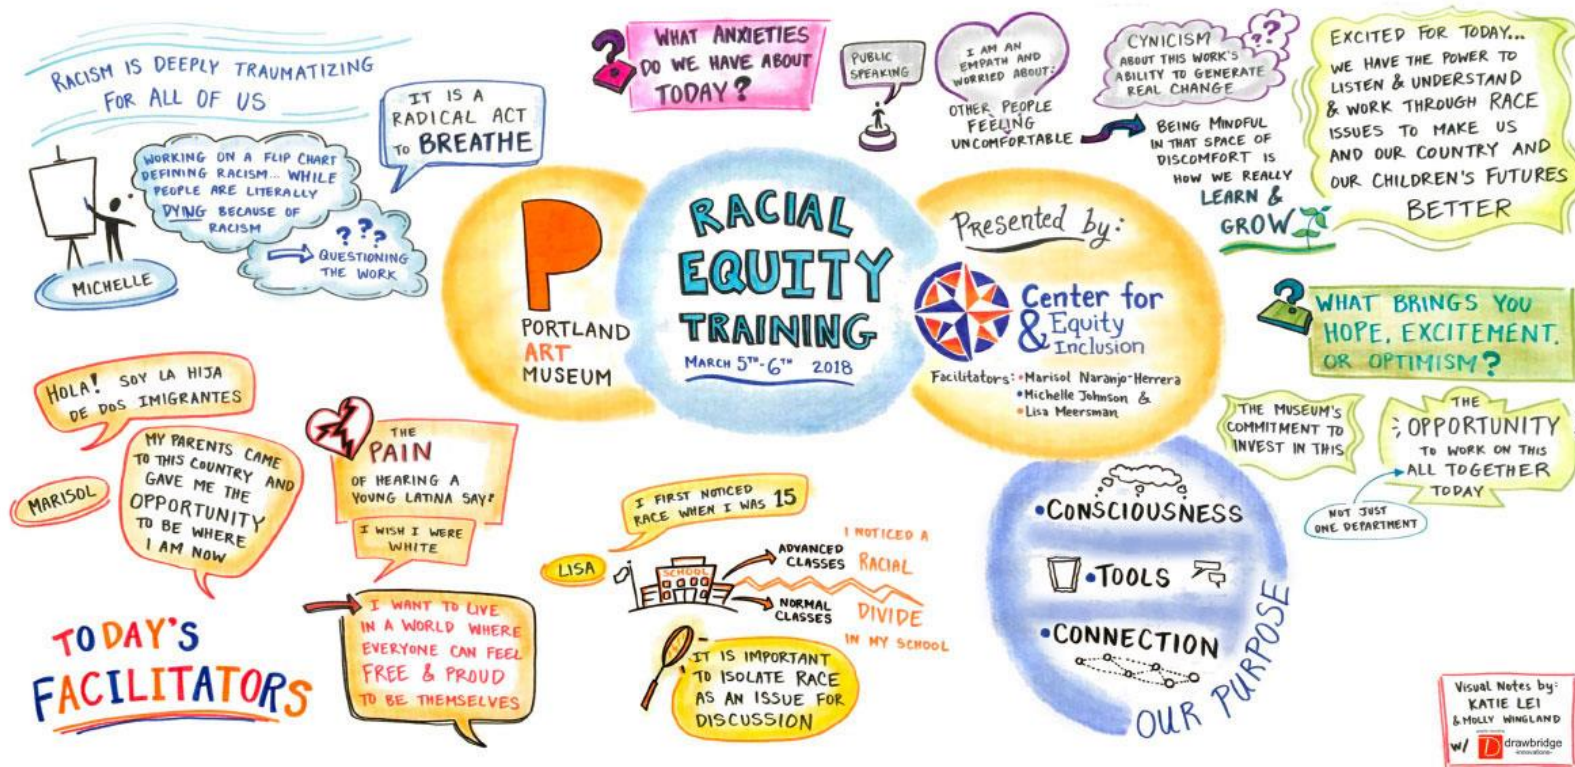 RACISM IS DEEPLY TRAUMATIZING
FOR ALL OF US
IT IS A
RADICAL ACT
TO BREATHE
WORKING ON A FLIP CHART
DEFINING RACISM... WHILE
PEOPLE ARE LITERALLY
DYING BECAUSE OF
RACISM
???
QUESTIONING
THE WORK
MICHELLE
?
WHAT ANXIETIES
DO WE HAVE ABOUT
TODAY?
PUBLIC
SPEAKING
I AM AN
EMPATH AND
WORRIED ABOUT:
OTHER PEOPLE
FEELING
UNCOMFORTABLE
CYNICISM
ABOUT THIS WORK'S
ABILITY TO GENERATE
REAL CHANGE
???
BEING MINDFUL
IN THAT SPACE OF
DISCOMFORT IS
HOW WE REALLY
LEARN &
GROW
EXCITED FOR TODAY...
WE HAVE THE POWER TO
LISTEN & UNDERSTAND
& WORK THROUGH RACE
ISSUES TO MAKE US
AND OUR COUNTRY AND
OUR CHILDREN'S FUTURES
BETTER
P
PORTLAND
ART
MUSEUM
RACIAL
EQUITY
TRAINING
MARCH 5TH-6TH 2018
Presented by:
Center for
& Equity
Inclusion
Facilitators: • Marisol Naranjo-Herrera
• Michelle Johnson &
• Lisa Meersman
?
WHAT BRINGS YOU
HOPE, EXCITEMENT,
OR OPTIMISM?
THE MUSEUM'S
COMMITMENT TO
INVEST IN THIS
THE
OPPORTUNITY
TO WORK ON THIS
ALL TOGETHER
TODAY
NOT JUST
ONE DEPARTMENT
HOLA! SOY LA HIJA
DE DOS IMIGRANTES
MARISOL
MY PARENTS CAME
TO THIS COUNTRY AND
GAVE ME THE
OPPORTUNITY
TO BE WHERE
I AM NOW
THE
PAIN
OF HEARING A
YOUNG LATINA SAY:
I WISH I WERE
WHITE
I WANT TO LIVE
IN A WORLD WHERE
EVERYONE CAN FEEL
FREE & PROUD
TO BE THEMSELVES
TODAY'S
FACILITATORS
I FIRST NOTICED
RACE WHEN I WAS 15
LISA
SCHOOL
ADVANCED
CLASSES
NORMAL
CLASSES
I NOTICED A
RACIAL
DIVIDE
IN MY SCHOOL
IT IS IMPORTANT
TO ISOLATE RACE
AS AN ISSUE FOR
DISCUSSION
• CONSCIOUSNESS
• TOOLS
• CONNECTION
OUR PURPOSE
Visual Notes by:
KATIE LEI
& MOLLY WINGLAND
W/ D drawbridge
-innovations-